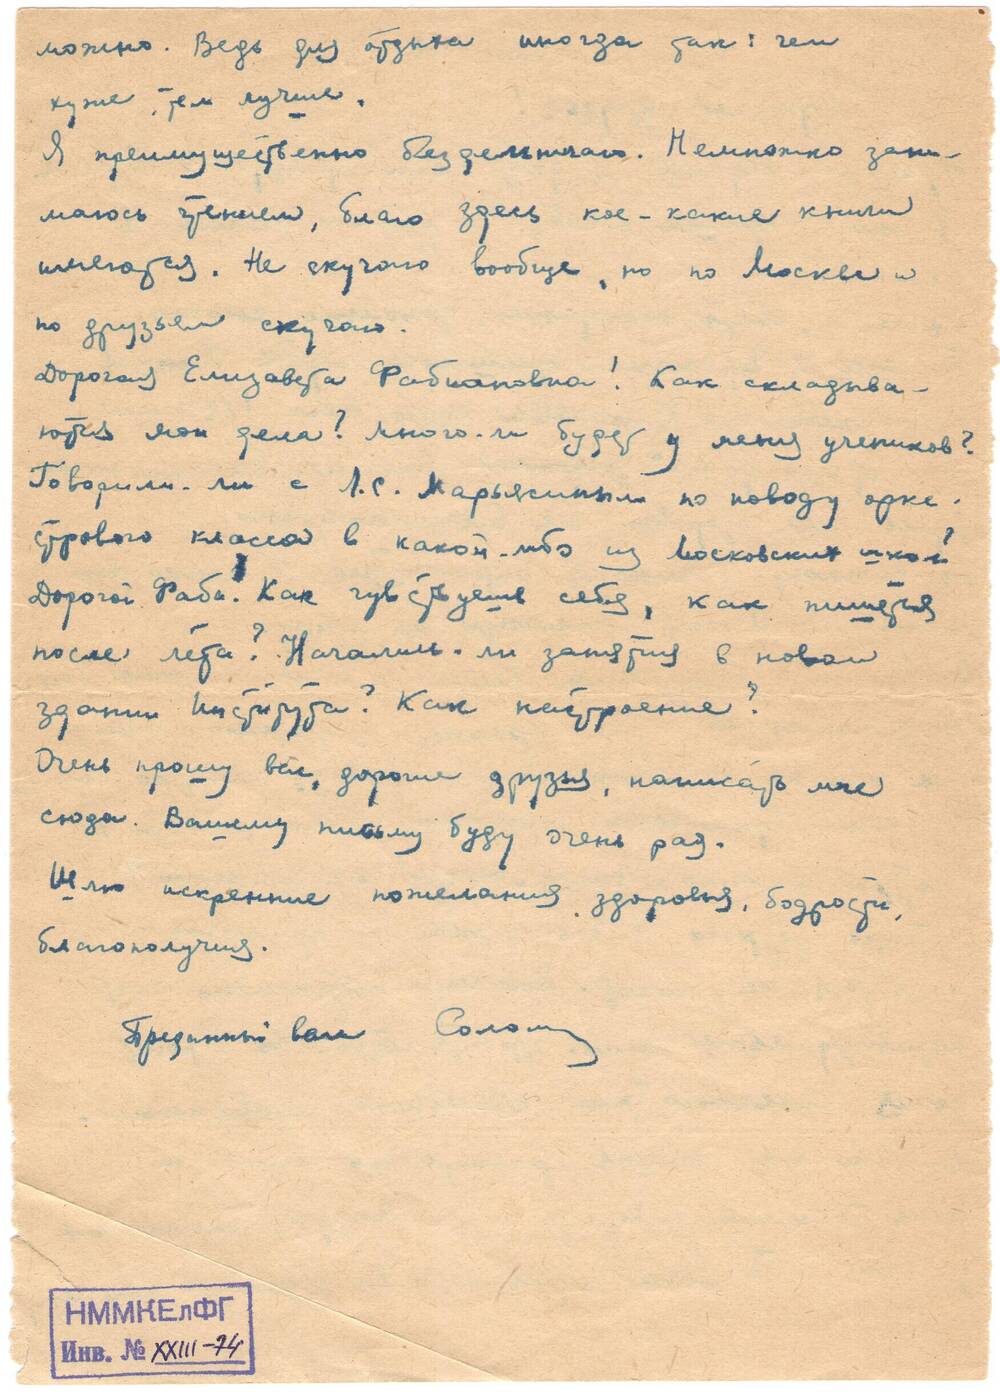 можно. Ведь для отдыха иногда так: чем
хуже, тем лучше.
Я преимущественно бездельничаю. Немножко зани-
маюсь чтением, благо здесь кое-какие книги
имеются. Не скучаю вообще, но по Москве и
по друзьям скучаю.
Дорогая Елизавета Фабиановна! Как складыва-
ются мои дела? Много-ли будет у меня учеников?
Говорили-ли с Л.С. Марьясиным по поводу орке-
стрового класса в какой-либо из Московских школ?
Дорогой Фабий! Как чувствуешь себя, как пишется
после лета? Начались-ли занятия в новом
здании Института? Как настроение?
Очень прошу вас, дорогие друзья, написать мне
сюда. Вашему письму буду очень рад.
Шлю искренние пожелания здоровья, бодрости,
благополучия.
Преданный вам Солом
НММКЕлФГ
Инв. № XXIII-74